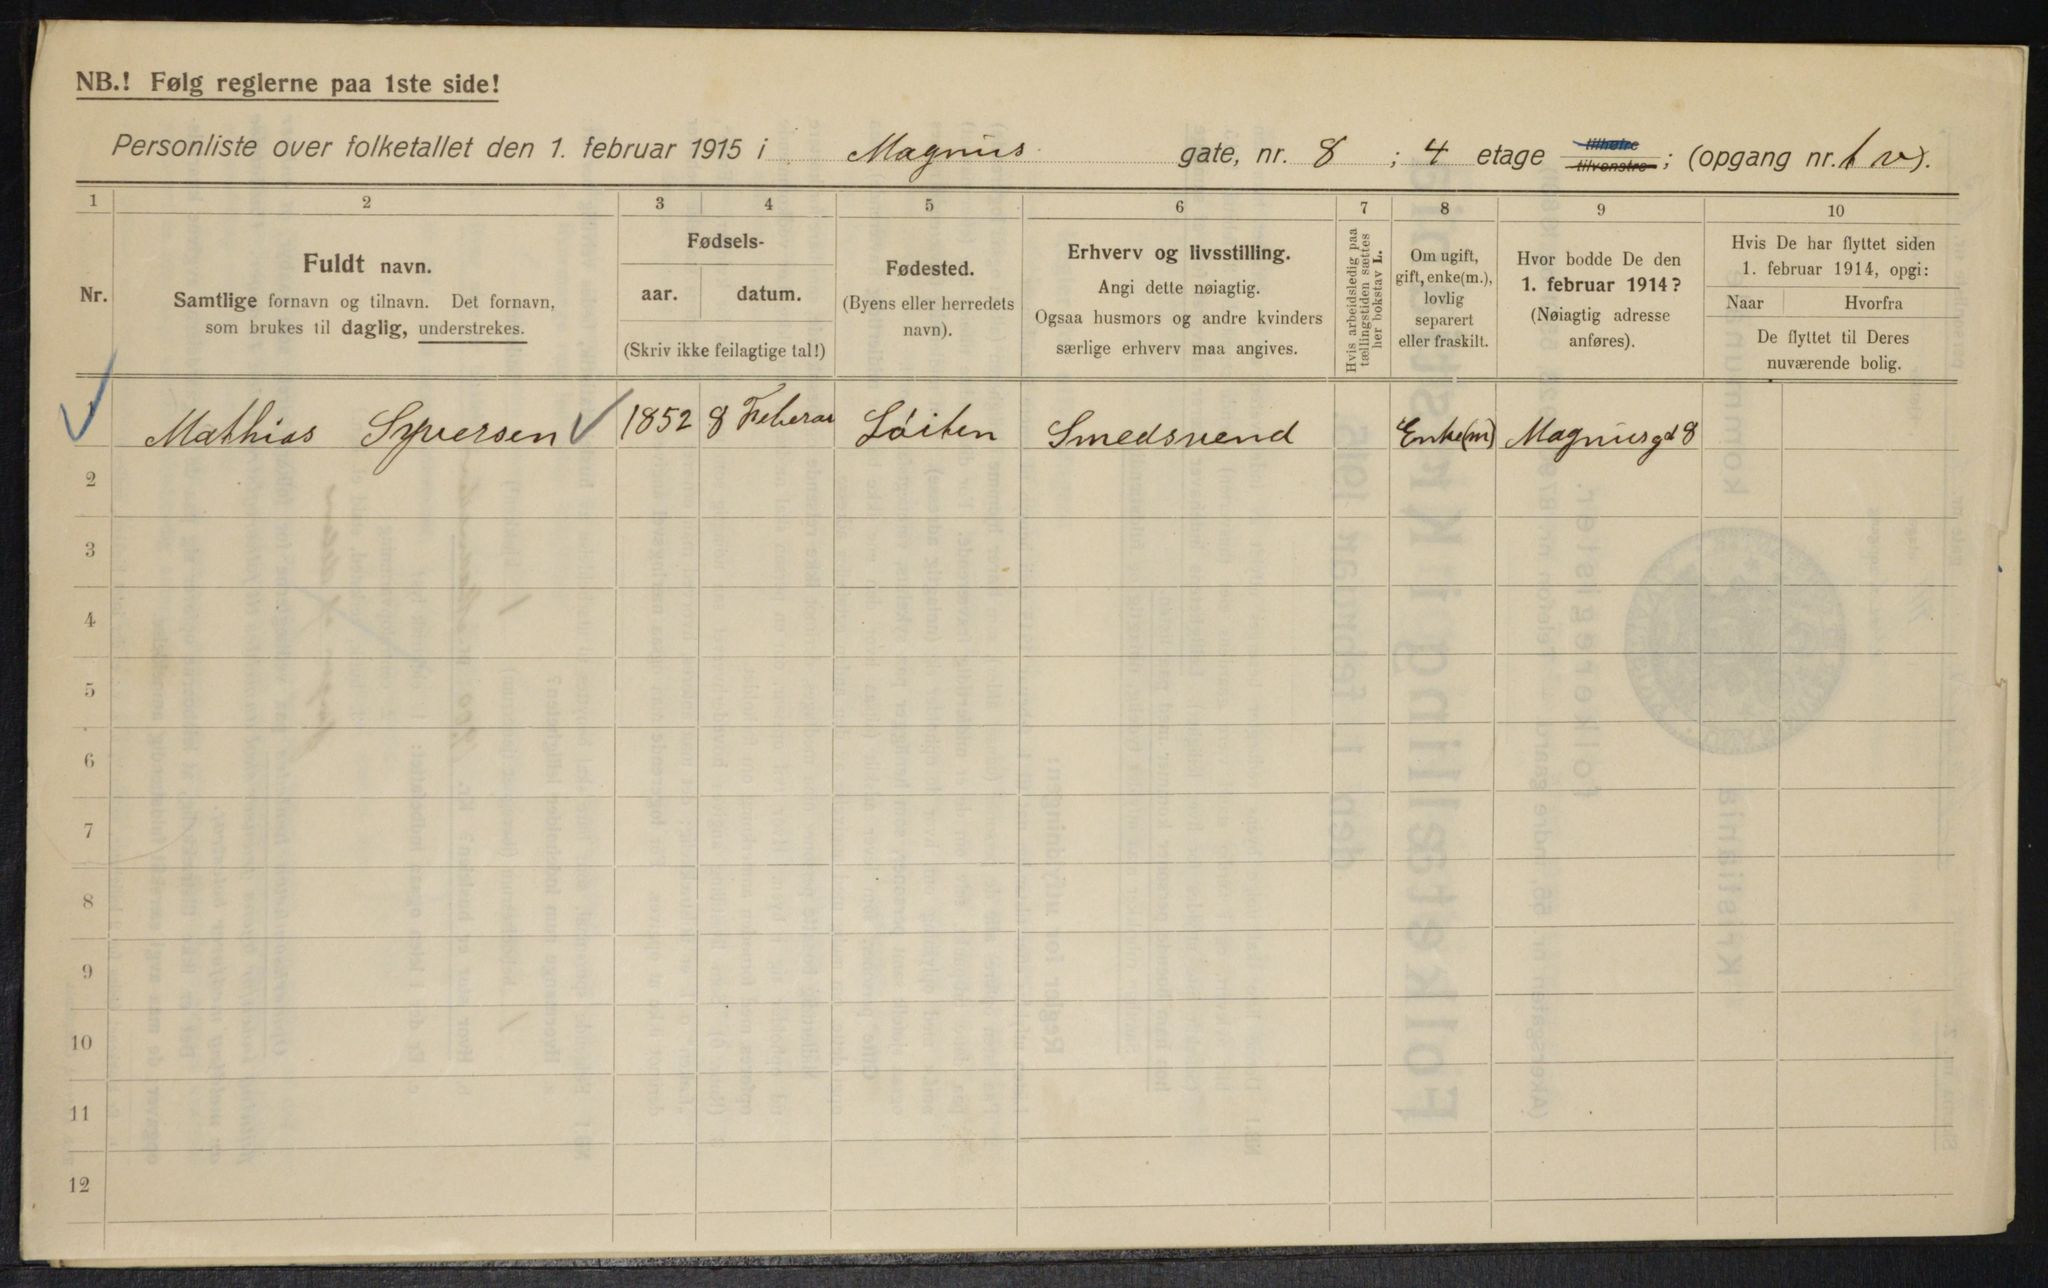 NB.! Følg reglerne paa 1ste side!
Personliste over folketallet den 1. februar 1915 i Magnus gate, nr. 8 ; 4 etage tilhøire tilvenstre ; (opgang nr. 1 v).
1 2 3 4 5 6 7 8 9 10
Nr.
Fuldt navn.
Samtlige fornavn og tilnavn. Det fornavn,
som brukes til daglig, understrekes.
Fødsels-
aar. datum.
(Skriv ikke feilagtige tal!)
Fødested.
(Byens eller herredets
navn).
Erhverv og livsstilling.
Angi dette nøiagtig.
Ogsaa husmors og andre kvinders
særlige erhverv maa angives.
Hvis arbeidsledig paa
tællingstiden sættes
her bokstav L.
Om ugift,
gift, enke(m.),
lovlig
separert
eller fraskilt.
Hvor bodde De den
1. februar 1914?
(Nøiagtig adresse
anføres).
Hvis De har flyttet siden
1. februar 1914, opgi:
Naar Hvorfra
De flyttet til Deres
nuværende bolig.
1 Mathias Syversen 1852 8 Feberar Löiten Smedsvend Enke(m) Magnusgd 8
2
3
4
5
6
7
8
9
10
11
12